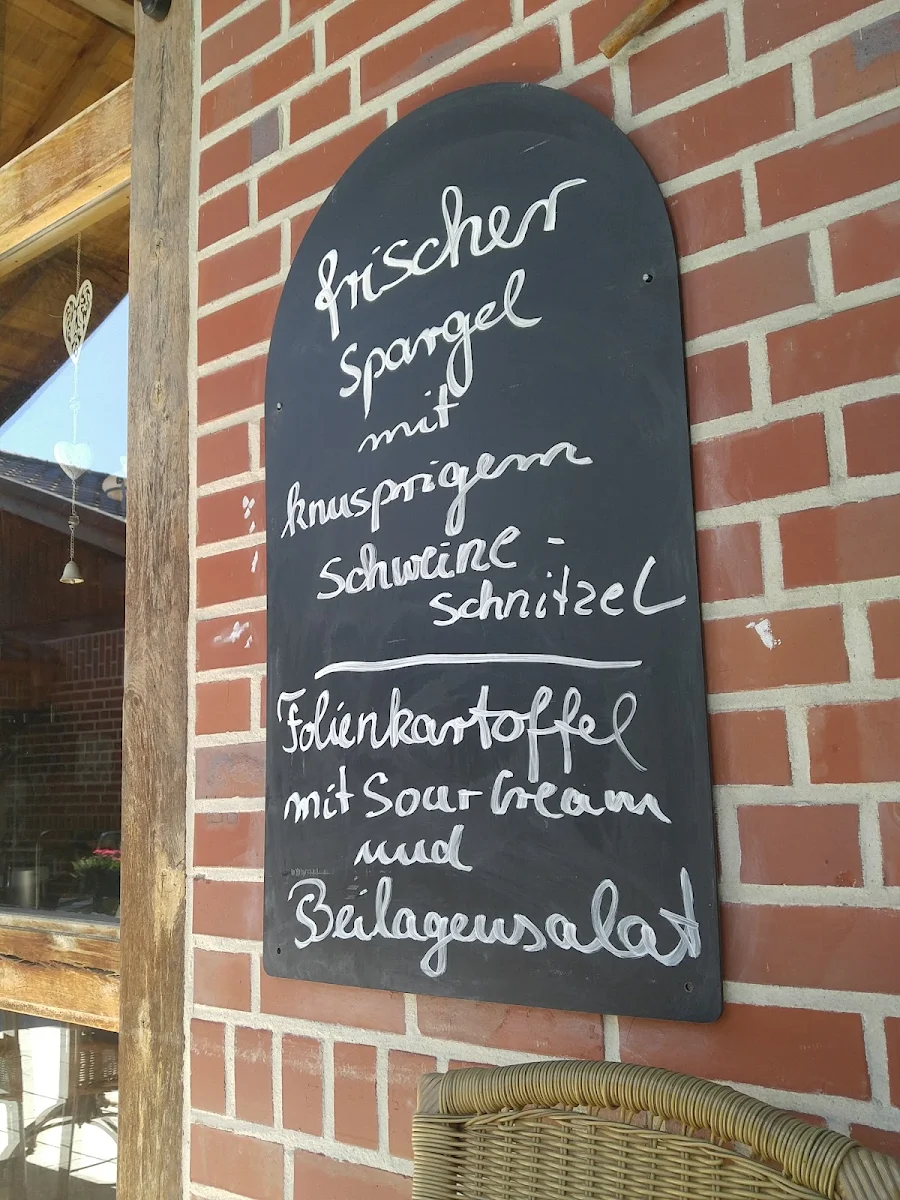 frischer
Spargel
mit
knusprigem
Schweine-
schnitzel
Folienkartoffel
mit Sour Cream
und
Beilagensalat